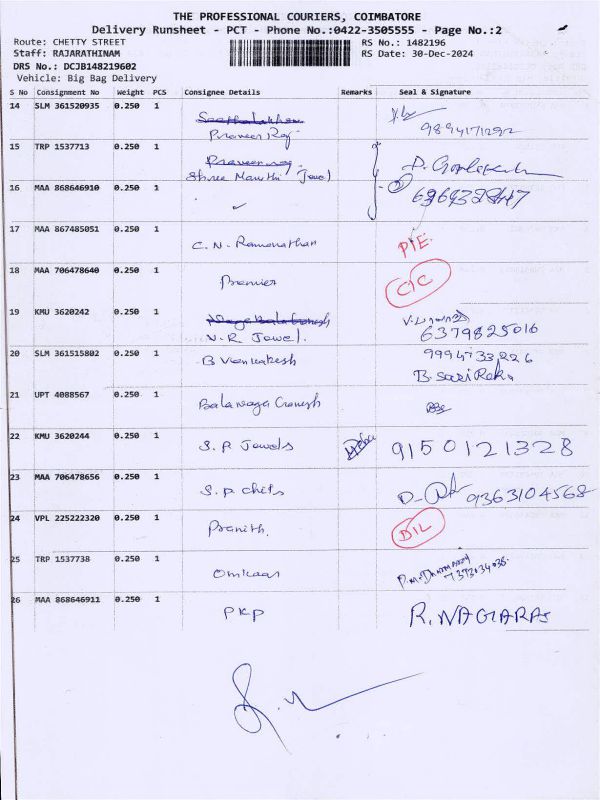 THE PROFESSIONAL COURIERS, COIMBATORE
Delivery Runsheet - PCT - Phone No.:0422-3505555 - Page No.:2
Route: CHETTY STREET RS No.: 1482196
Staff: RAJARATHINAM RS Date: 30-Dec-2024
DRS No.: DCJB148219602
Vehicle: Big Bag Delivery
S No Consignment No Weight PCS Consignee Details Remarks Seal & Signature
14 SLM 361520935 0.250 1
Praveen Raj 9894171292
15 TRP 1537713 0.250 1
Shree Maruthi Jewel
16 MAA 868646910 0.250 1
✓
17 MAA 867485051 0.250 1
C. N. Ramanathan P/E
18 MAA 706478640 0.250 1
Premier C/C
19 KMU 3620242 0.250 1
N. R Jewel. 6379825016
20 SLM 361515802 0.250 1 9994733226
B Venkatesh B. SasiReka
21 UPT 4088567 0.250 1
Balanaga Ganesh
22 KMU 3620244 0.250 1
S. P Jewels 9150121328
23 MAA 706478656 0.250 1
S. P chits 9363104568
24 VPL 225222320 0.250 1
Pranith. D/L
25 TRP 1537738 0.250 1
Omkaar 7373034035
26 MAA 868646911 0.250 1
PKP R. NAGARAJ